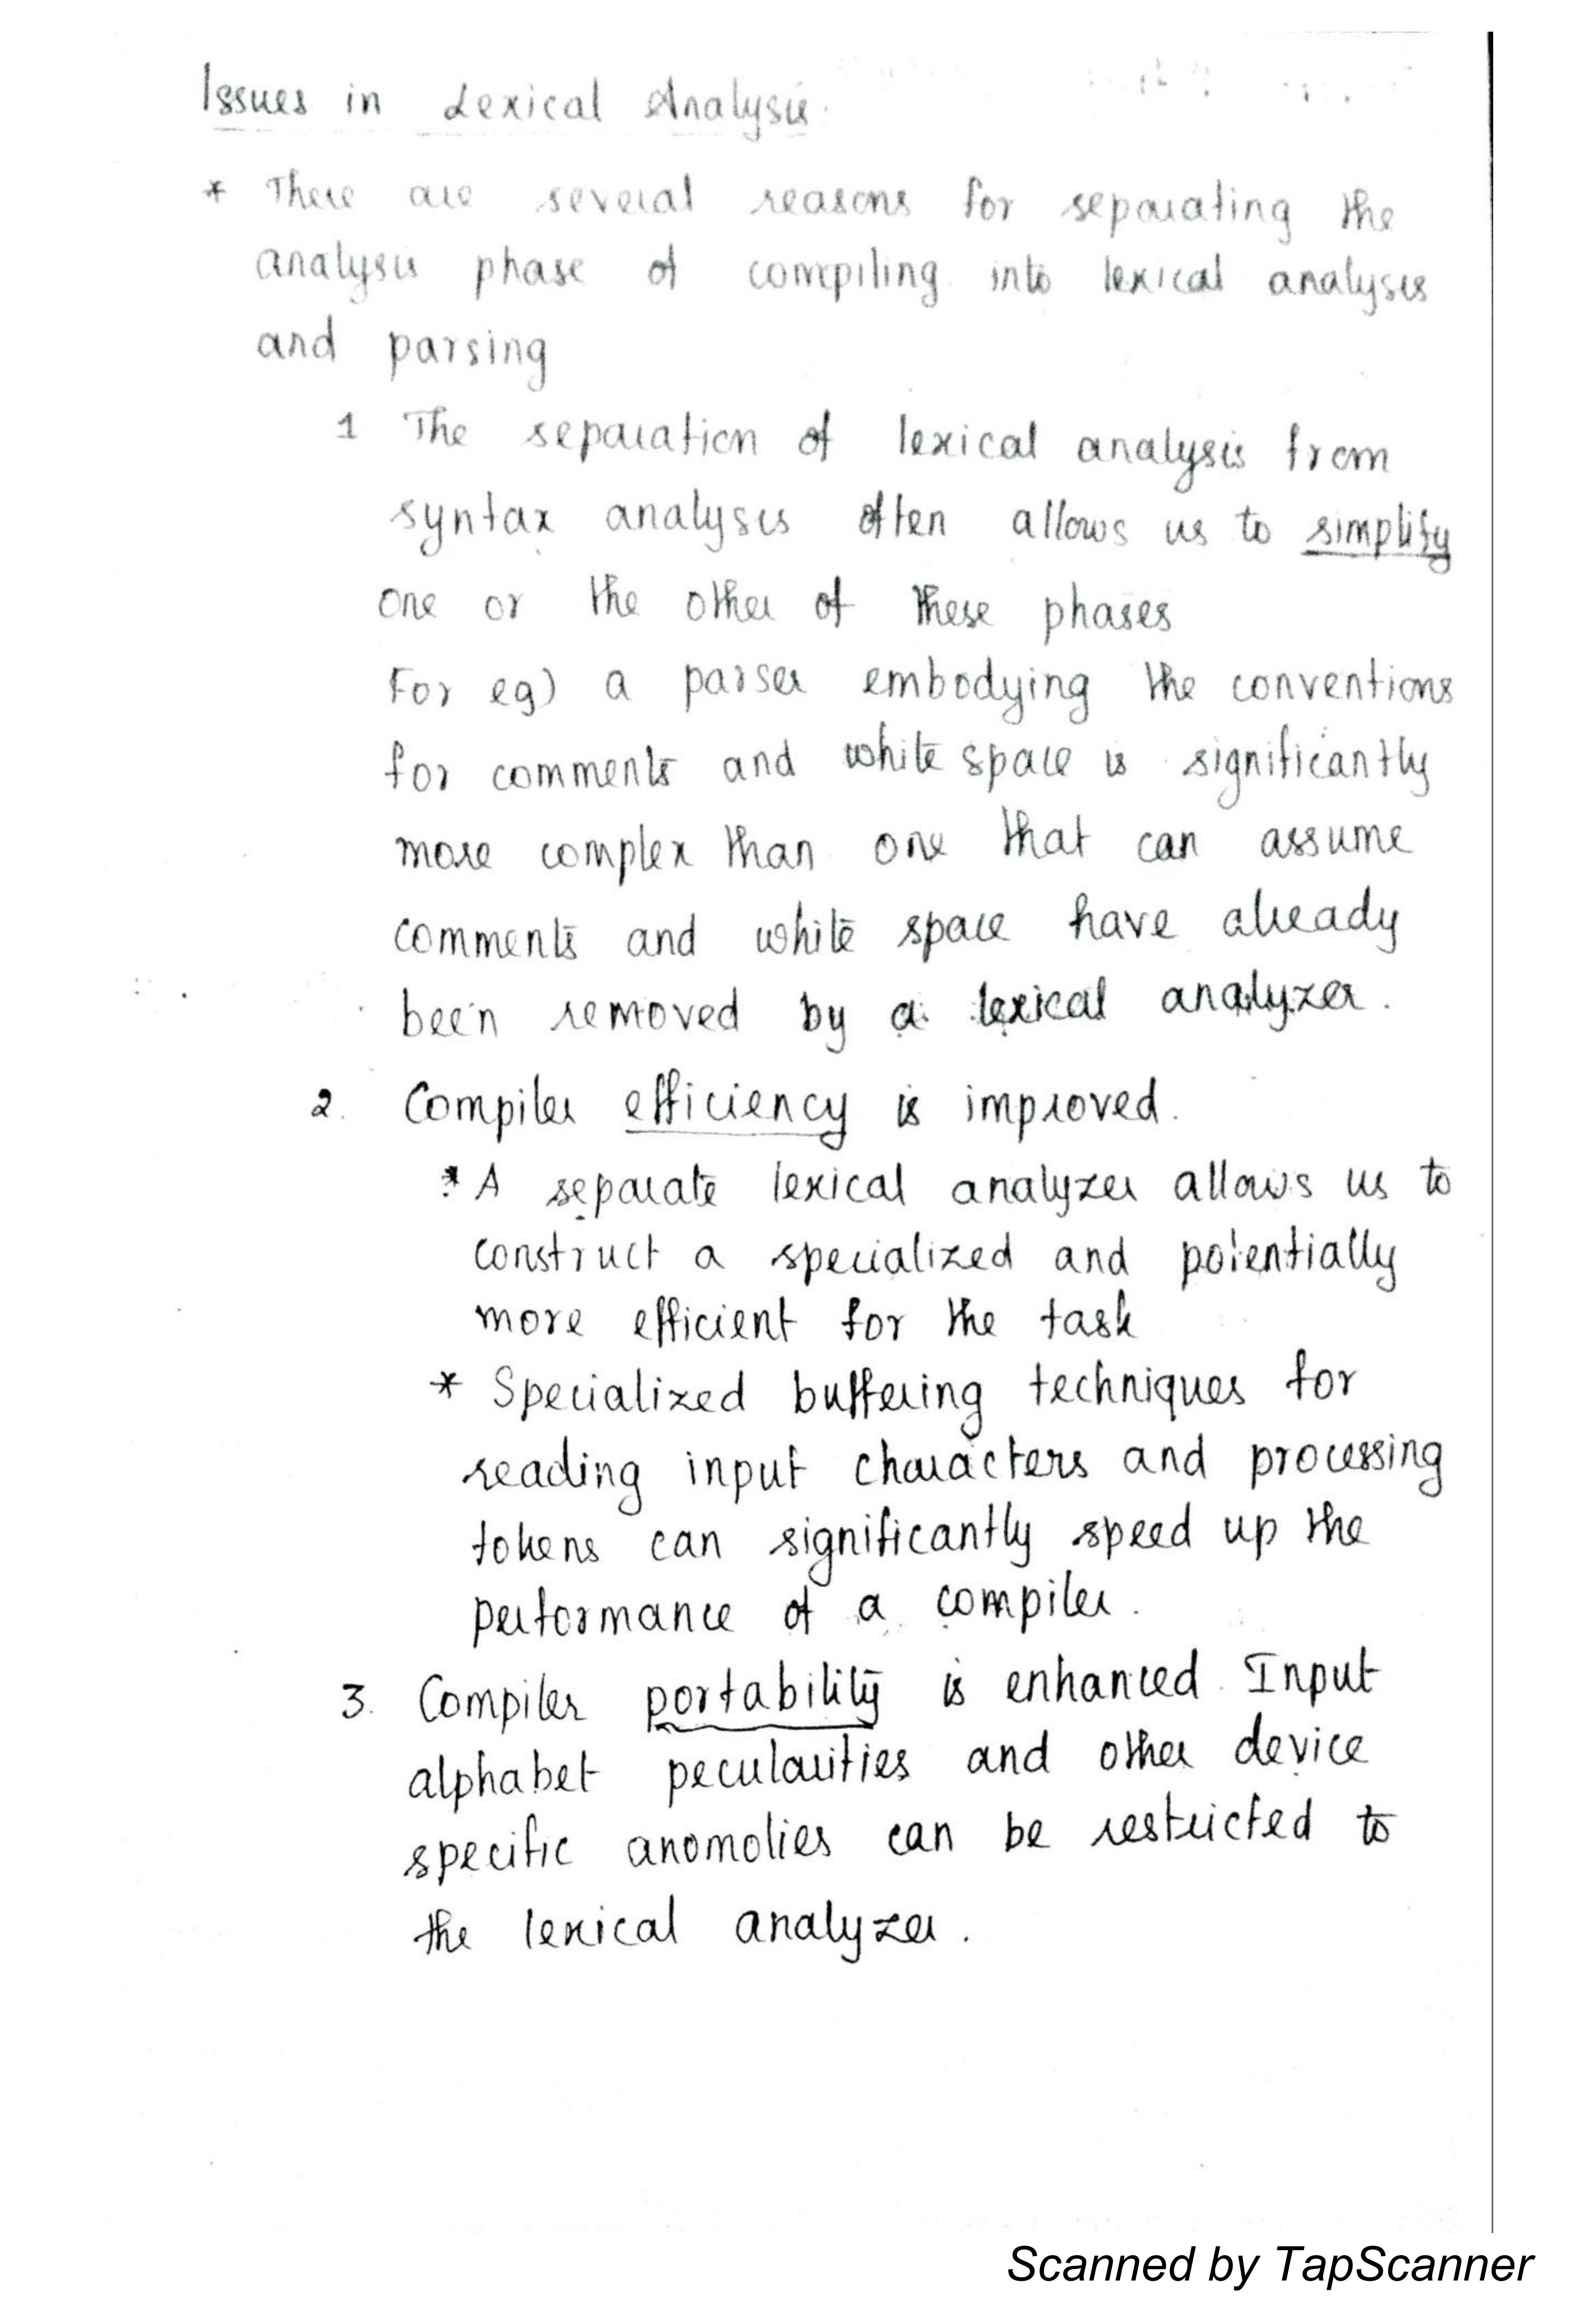 Issues in Lexical Analysis
* There are several reasons for separating the
analysis phase of compiling into lexical analysis
and parsing
1 The separation of lexical analysis from
syntax analysis often allows us to simplify
one or the other of these phases
For eg) a parser embodying the conventions
for comments and white space is significantly
more complex than one that can assume
comments and white space have already
been removed by a lexical analyzer.
2. Compiler efficiency is improved.
* A separate lexical analyzer allows us to
construct a specialized and potentially
more efficient for the task
* Specialized buffering techniques for
reading input characters and processing
tokens can significantly speed up the
performance of a compiler.
3. Compiler portability is enhanced Input
alphabet pecularities and other device
specific anomolies can be restricted to
the lexical analyzer.
Scanned by TapScanner